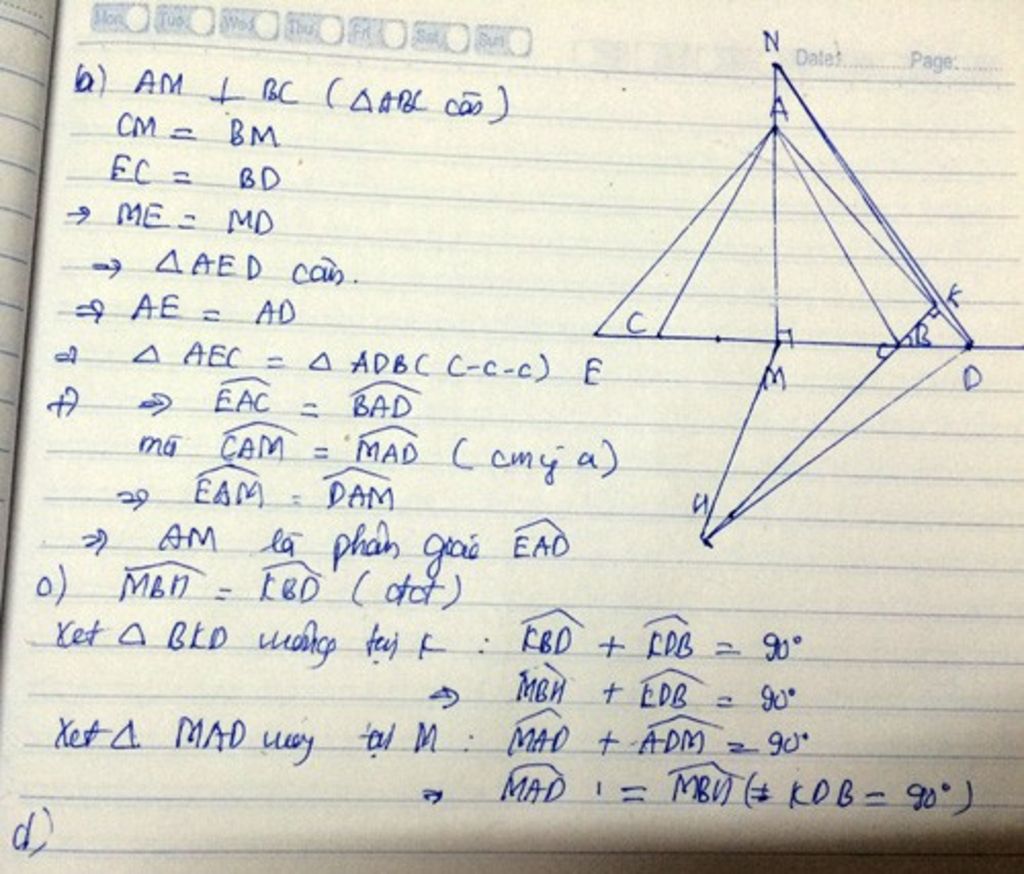 Mon Tue Wed Thu Fri Sat Sun
Date: Page:
b) AM ⊥ BC (△ABC cân)
CM = BM
EC = BD
→ ME = MD
⇒ △AED cân.
⇒ AE = AD
⇒ △ AEC = △ ADB (C-C-C)
+) ⇒ EAC = BAD
mà CAM = MAD (cmý a)
⇒ EAM = DAM
⇒ AM là phân giác EAD
c) MBH = KBD (đđ)
Xét △ BKD vuông tại K : KBD + KDB = 90°
⇒ MBH + KDB = 90°
Xét △ MAD vuông tại M : MAD + ADM = 90°
⇒ MAD = MBH (+ KDB = 90°)
d)
N
A
K
C
B
E
M
D
H